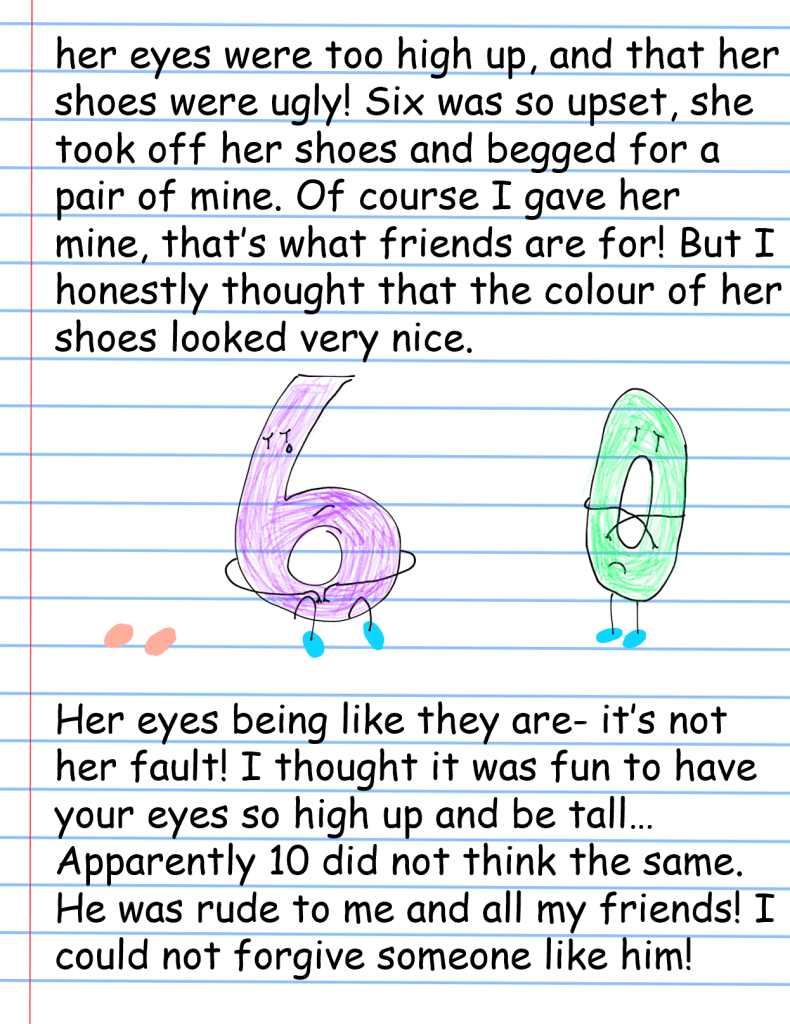 her eyes were too high up, and that her
shoes were ugly! Six was so upset, she
took off her shoes and begged for a
pair of mine. Of course I gave her
mine, that's what friends are for! But I
honestly thought that the colour of her
shoes looked very nice.
Her eyes being like they are- it's not
her fault! I thought it was fun to have
your eyes so high up and be tall...
Apparently 10 did not think the same.
He was rude to me and all my friends! I
could not forgive someone like him!